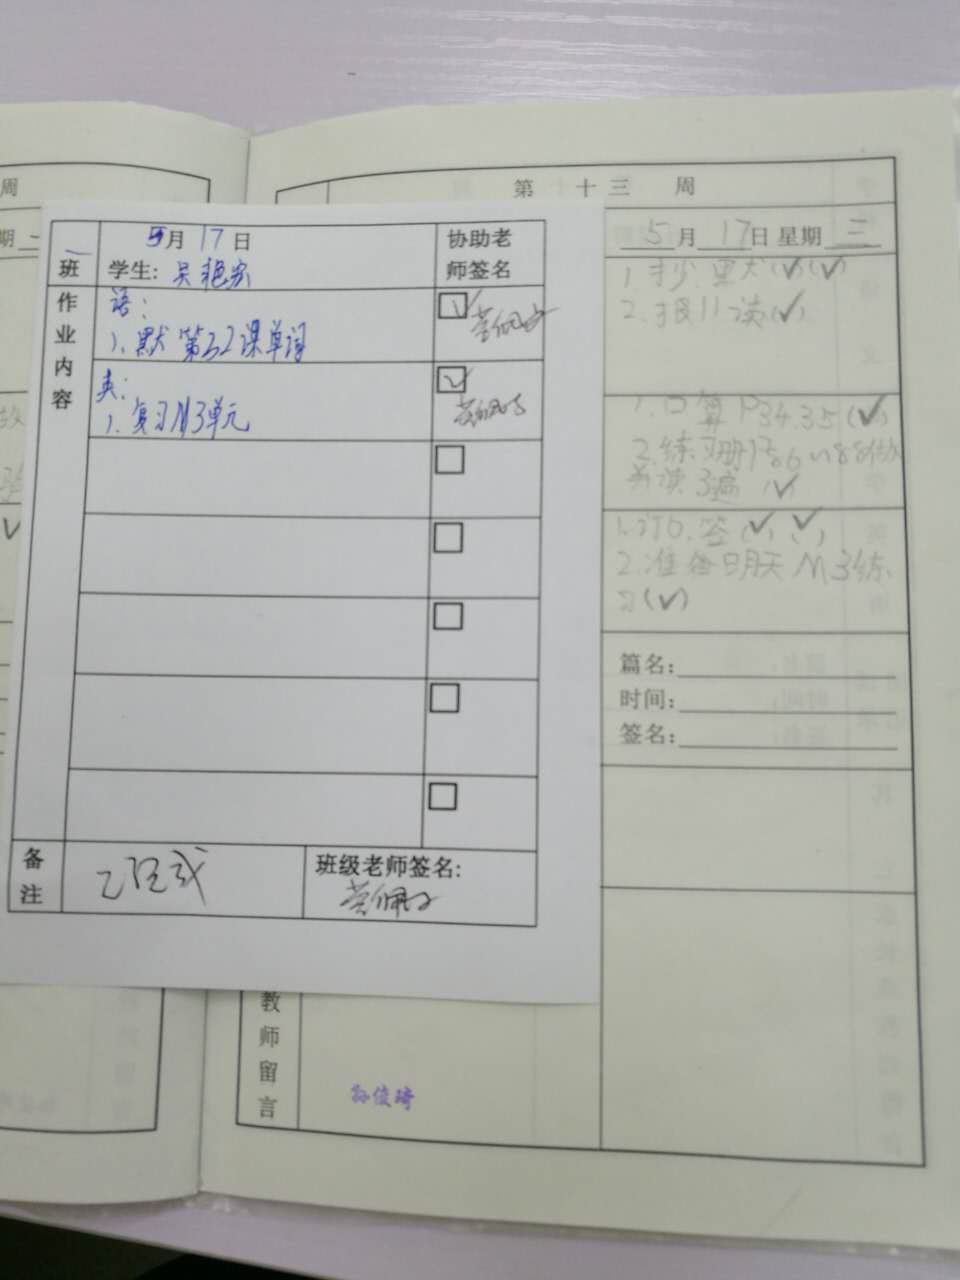 周
期一
第 十 三 周
5月 17日 星期 三
1.抄.默(✓)(✓)
2.报11读(✓)
1.口算P34.35(✓)
2.练习册P86
读3遍 (✓)
1.订6.签(✓)(✓)
2.准备明天M3练
习(✓)
篇名:
时间:
签名:
教师留言
孙俊琦
一班
5月17日
学生:
协助老
师签名
作业内容
语:
1.默第32课单词
☑
英:
1.复习M3单元
☑
备注
已完成
班级老师签名: